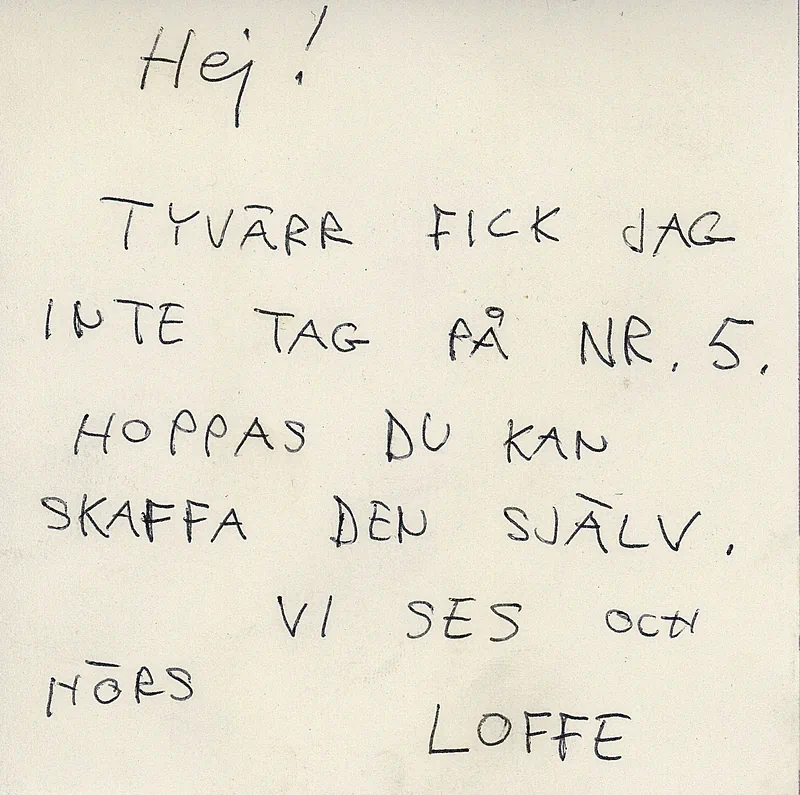 Hej!
TYVÄRR FICK JAG
INTE TAG PÅ NR. 5.
HOPPAS DU KAN
SKAFFA DEN SJÄLV.
VI SES OCH
HÖRS
LOFFE